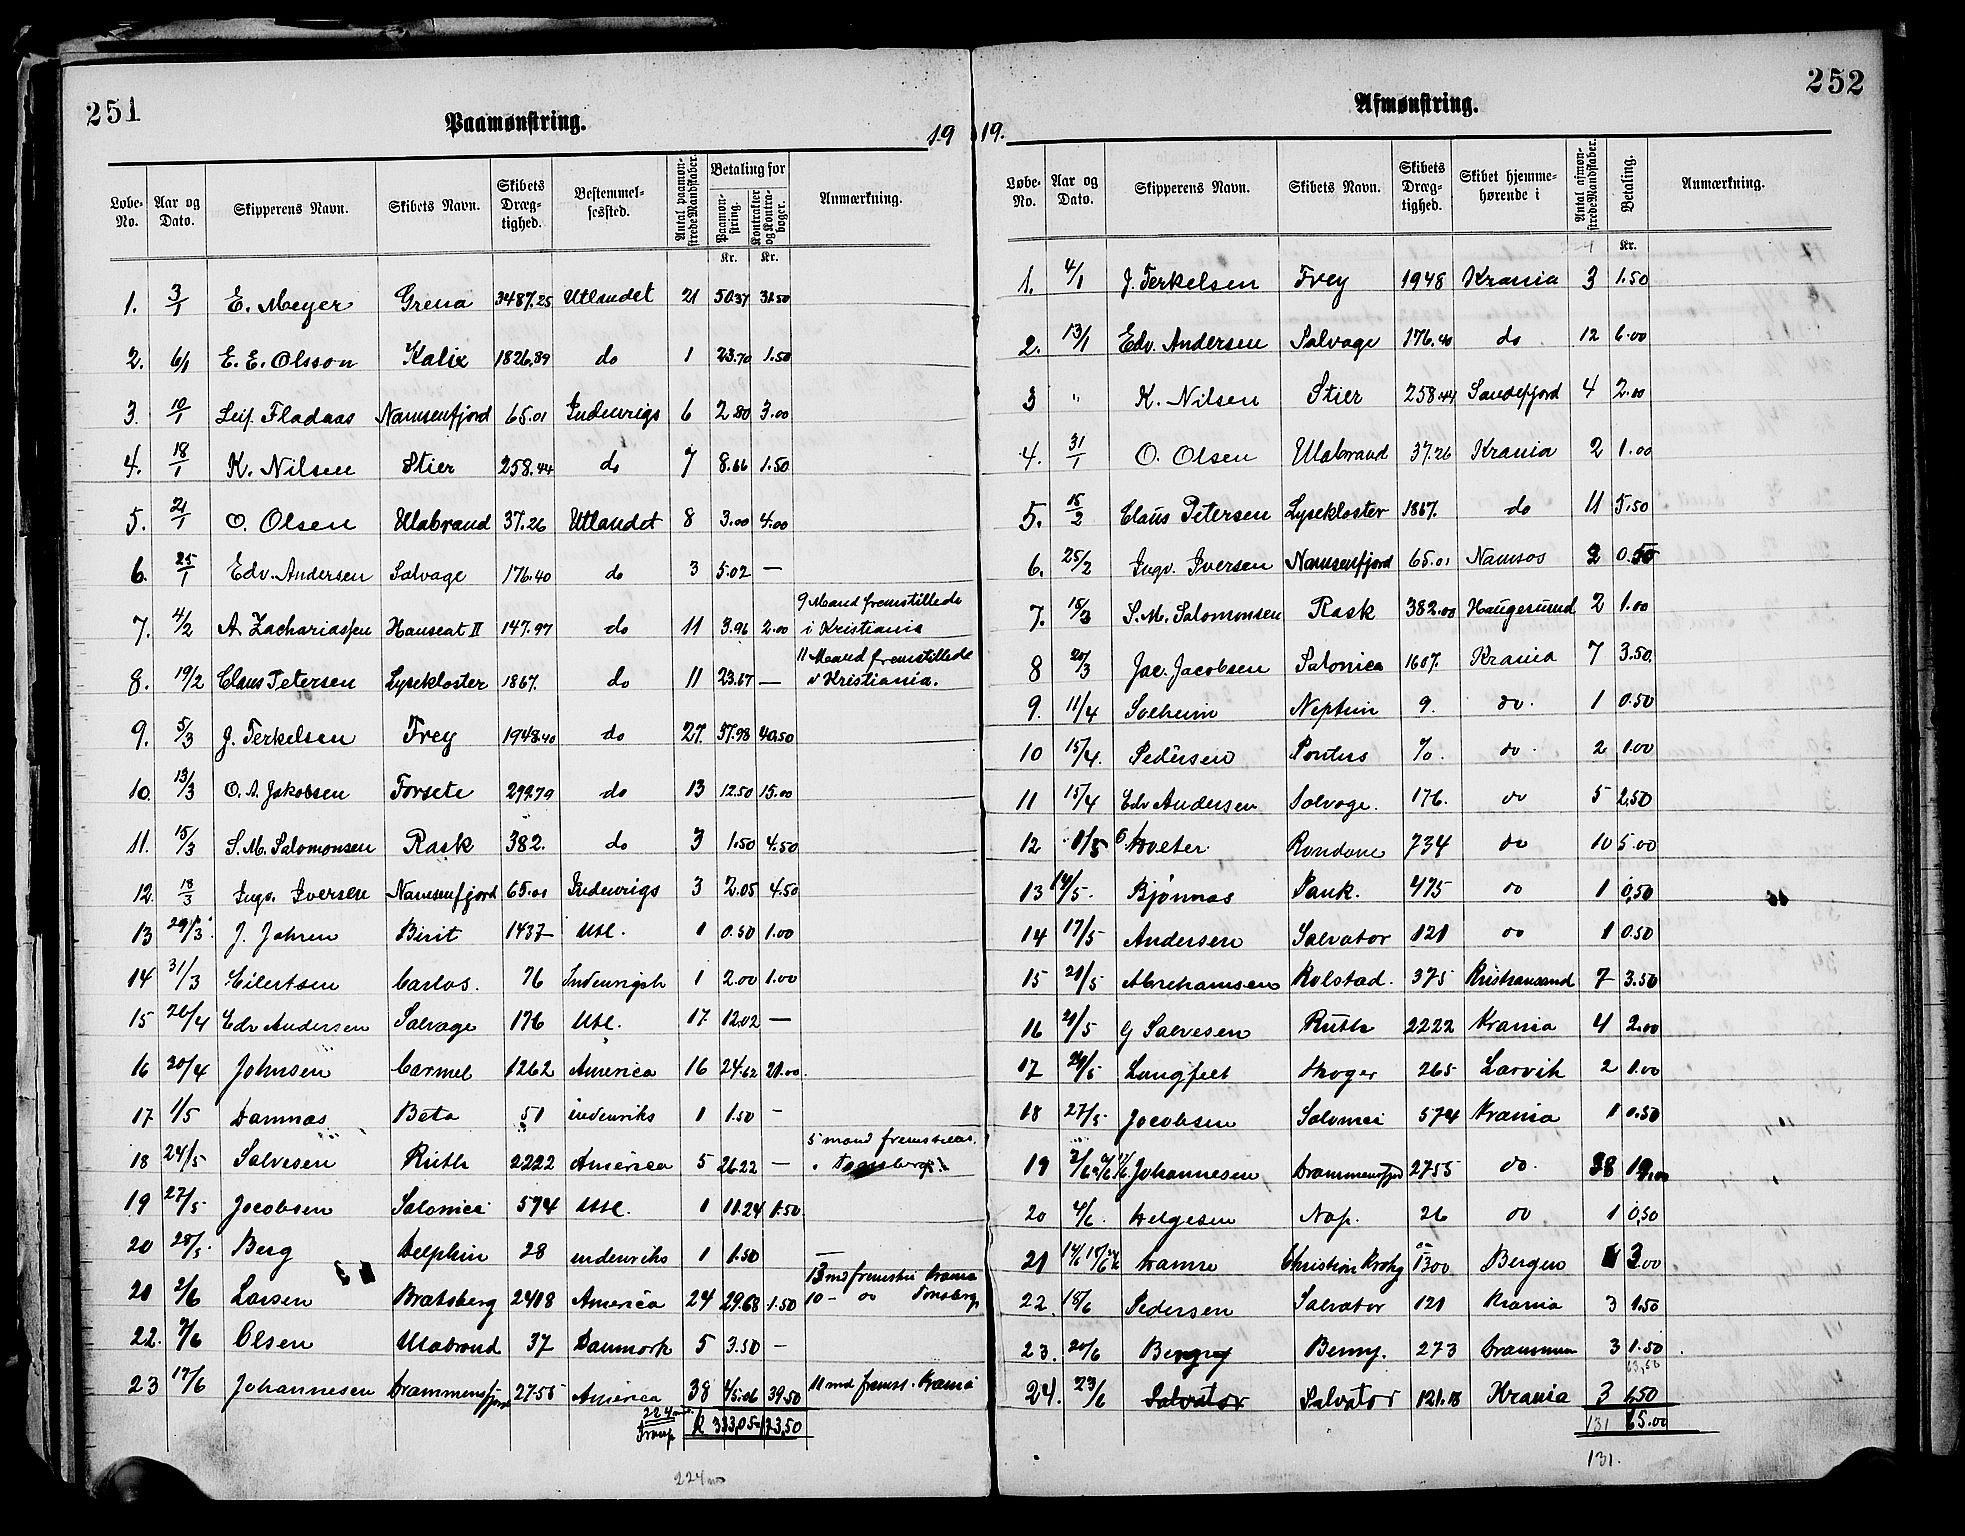 251
Paamønstring.
19
Løbe-No. Aar og Dato. Skipperens Navn. Skibets Navn. Skibets Dræg-tighed. Bestemmel-sessted. Antal paamøn-strede Mandskaber. Betaling for Paamøn-string. Kr. Kontrakter og Kontra-bøger. Kr. Anmærkning.
1. 3/1 E. Meyer Grena 3487.25 Utlandet 21 50.37 31.50
2. 6/1 E. E. Olsson Kalix 1826.89 do 1 23.70 1.50
3. 10/1 Leif Fladaas Namsenfjord 65.01 Indenrigs 6 2.80 3.00
4. 18/1 K. Nilsen Stier 258.44 do 7 8.66 1.50
5. 21/1 O. Olsen Ulabrand 37.26 Utlandet 8 3.00 4.00
6. 25/1 Edv. Andersen Salvage 176.40 do 3 5.02 —
7. 4/2 A. Zachariassen Hanseat II 147.97 do 11 3.96 2.00 9 Mand fremstillede i Kristiania
8. 19/2 Claus Petersen Lysekloster 1867. do 11 23.67 — 11 Mand fremstillede i Kristiania.
9. 5/3 J. Terkelsen Frey 1948.40 do 27. 57.98 40.50
10. 13/3 O. A. Jakobsen Forsete 299.79 do 13 12.50 15.00
11. 15/3 S. M. Salomonsen Rask 382. do 3 1.50 4.50
12. 18/3 Ingv. Iversen Namsenfjord 65.01 Indenrigs 3 2.05 4.50
13 29/3. J. Johren Birit 1437 Utl. 1 0.50 1.00
14 31/3 Eilertsen Carlos. 76 Indenrigsk 1 2.00 1.00
15 26/4 Edv Andersen Salvage 176 Utl. 17 12.02 —
16 30/4 Johnsen Carmel 1262 America 16 24.62 21.00.
17 1/5 Damnas Beta 51 indenriks 1 1.50 —
18 24/5 Salvesen Ruth 2222 America 5 26.22 — 5 mand fremstillet i Tønsberg
19 27/5 Jacobsen Salomei 574 Utl. 1 11.24 1.50
20 28/5. Berg Delphin 28 indenriks 1 1.50 —
21 2/6 Larsen Bratsberg 2418 America 24 29.68 1.50 13 md fremstil Krania 10 – do Tønsberg
22. 7/6 Olsen Ulabrand 37 Danmark 5 3.50 —
23 17/6 Johannesen Drammensfjord 2755 America 38 45.06 39.50 11 md fremst. Krania
224 k 333,05 173,50
224 m
252
Afmønstring.
19.
Løbe-No. Aar og Dato. Skipperens Navn. Skibets Navn. Skibets Dræg-tighed. Skibet hjemme-hørende i Antal afmøn-strede Mandskaber. Betaling. Kr. Anmærkning.
1. 4/1 J. Terkelsen Frey 1948 Krania 3 1.50
2. 13/1 Edv. Andersen Salvage 176.40 do 12 6.00
3 " K. Nilsen Stier 258.44 Sandefjord 4 2.00
4. 31/1 O. Olsen Ulabrand 37.26 Krania 2 1.00
5. 15/2 Claus Petersen Lysekloster 1867. do 11 5.50
6. 25/2 Ingv. Iversen Namsenfjord 65.01 Namsos 2 0.50
7. 15/3 S. M. Salomonsen Rask 382.00 Haugesund 2 1.00
8 20/3 Jac. Jacobsen Salonica 1607. Krania 7 3.50.
9. 11/4 Solheim Neptun 9. do. 1 0.50
10 15/4. Pedersen Pontus do. 2 1.00
11 15/4 Edv Andersen Salvage. 176. do 5 2.50
12 1/5 Hveter Rondane 734 do 10 5.00
13 14/5. Bjönnas Pauk. 475 do 1 0,50
14 17/5 Andersen Salvator 121 do 1 0.50
15 21/5 Abrehamsen Rolstad. 375 Kristiansand 7 3.50
16 21/5 G Salvesen Ruth 2222 Krania 4 2.00
17 24/5 Langfelt Skoger 265 Larvik 2 1.00
18 27/5 Jacobsen Salomei 574 Krania 1 0.50
19 Johannesen Drammensfjord 2755 do. 38 19.00
20 4/6. Helgesen Nap. 26 do 1 0,50
21 Hamre Christian Krohg 1300 Bergen 3.00
22. 18/6 Pedersen Salvator 121 Krania 3 1.50
23. 20/6 Bergrey Benny. 273 Drammen 3 1.50
63,50
24. 23/6 Salvator Salvator 121.18 Krania 3 1.50
131 65.00
131.